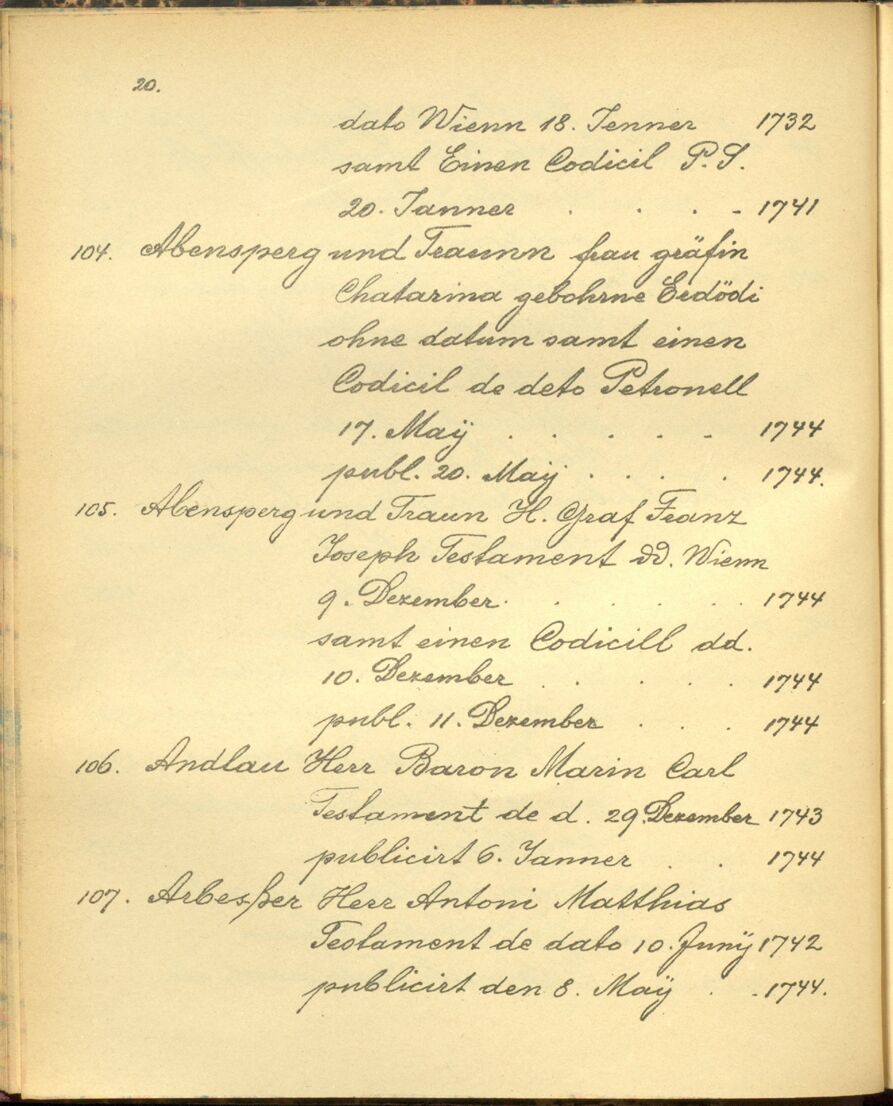 20.
dato Wienn 18. Jenner 1732
samt Einen Codicil P.S.
20. Janner . . . . 1741
104. Abensperg und Traunn frau gräfin
Chatarina gebohrne Erdödi
ohne datum samt einen
Codicil de deto Petronell
17. Maÿ . . . . . 1744
publ. 20. Maÿ . . . . 1744.
105. Abensperg und Traun H. Graf Franz
Joseph Testament dd. Wienn
9. Dezember . . . . . 1744
samt einen Codicill dd.
10. Dezember . . . . 1744
publ. 11. Dezember . . . 1744
106. Andlau Herr Baron Marin Carl
Testament de d. 29. Dezember 1743
publicirt 6. Janner . . 1744
107. Arbesßer Herr Antoni Matthias
Testament de dato 10. Junÿ 1742
publicirt den 8. Maÿ . . 1744.